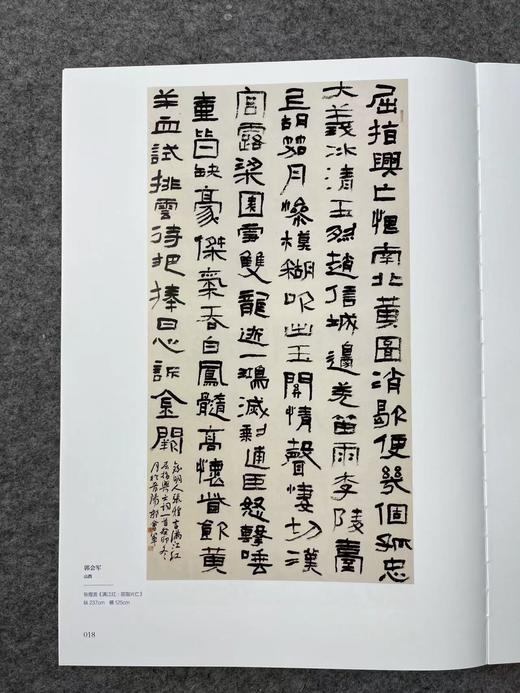 屈指興亡恨南北黄圖消歇便幾個孤忠
大義冰清玉烈趙信城邊羌笛雨李陵臺
上胡笳月慘模糊吹出玉關情聲悽切漢
宮露梁園雪雙龍逝一鴻滅剩逋臣怒擊唾
壺皆缺豪傑氣吞白鳳髓高懷眥飲黄
羊血試排雲待把捧日心訴金闕
錄明人張煌言滿江紅
屈指興亡詞一首癸卯冬
月於晉陽郭會軍
郭会军
山西
张煌言《满江红·屈指兴亡》
纵 237cm 横 125cm
018